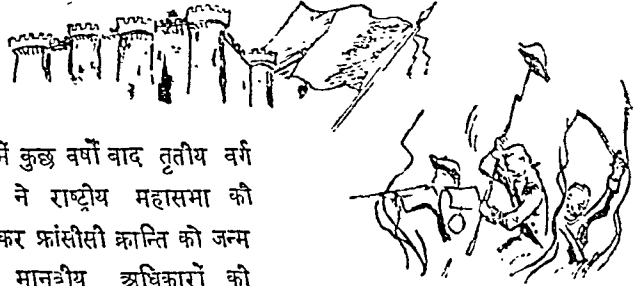 में कुछ वर्षों बाद तृतीय वर्ग
ने राष्ट्रीय महासभा की
कर फ्रांसीसी क्रान्ति को जन्म
मानवीय अधिकारों की